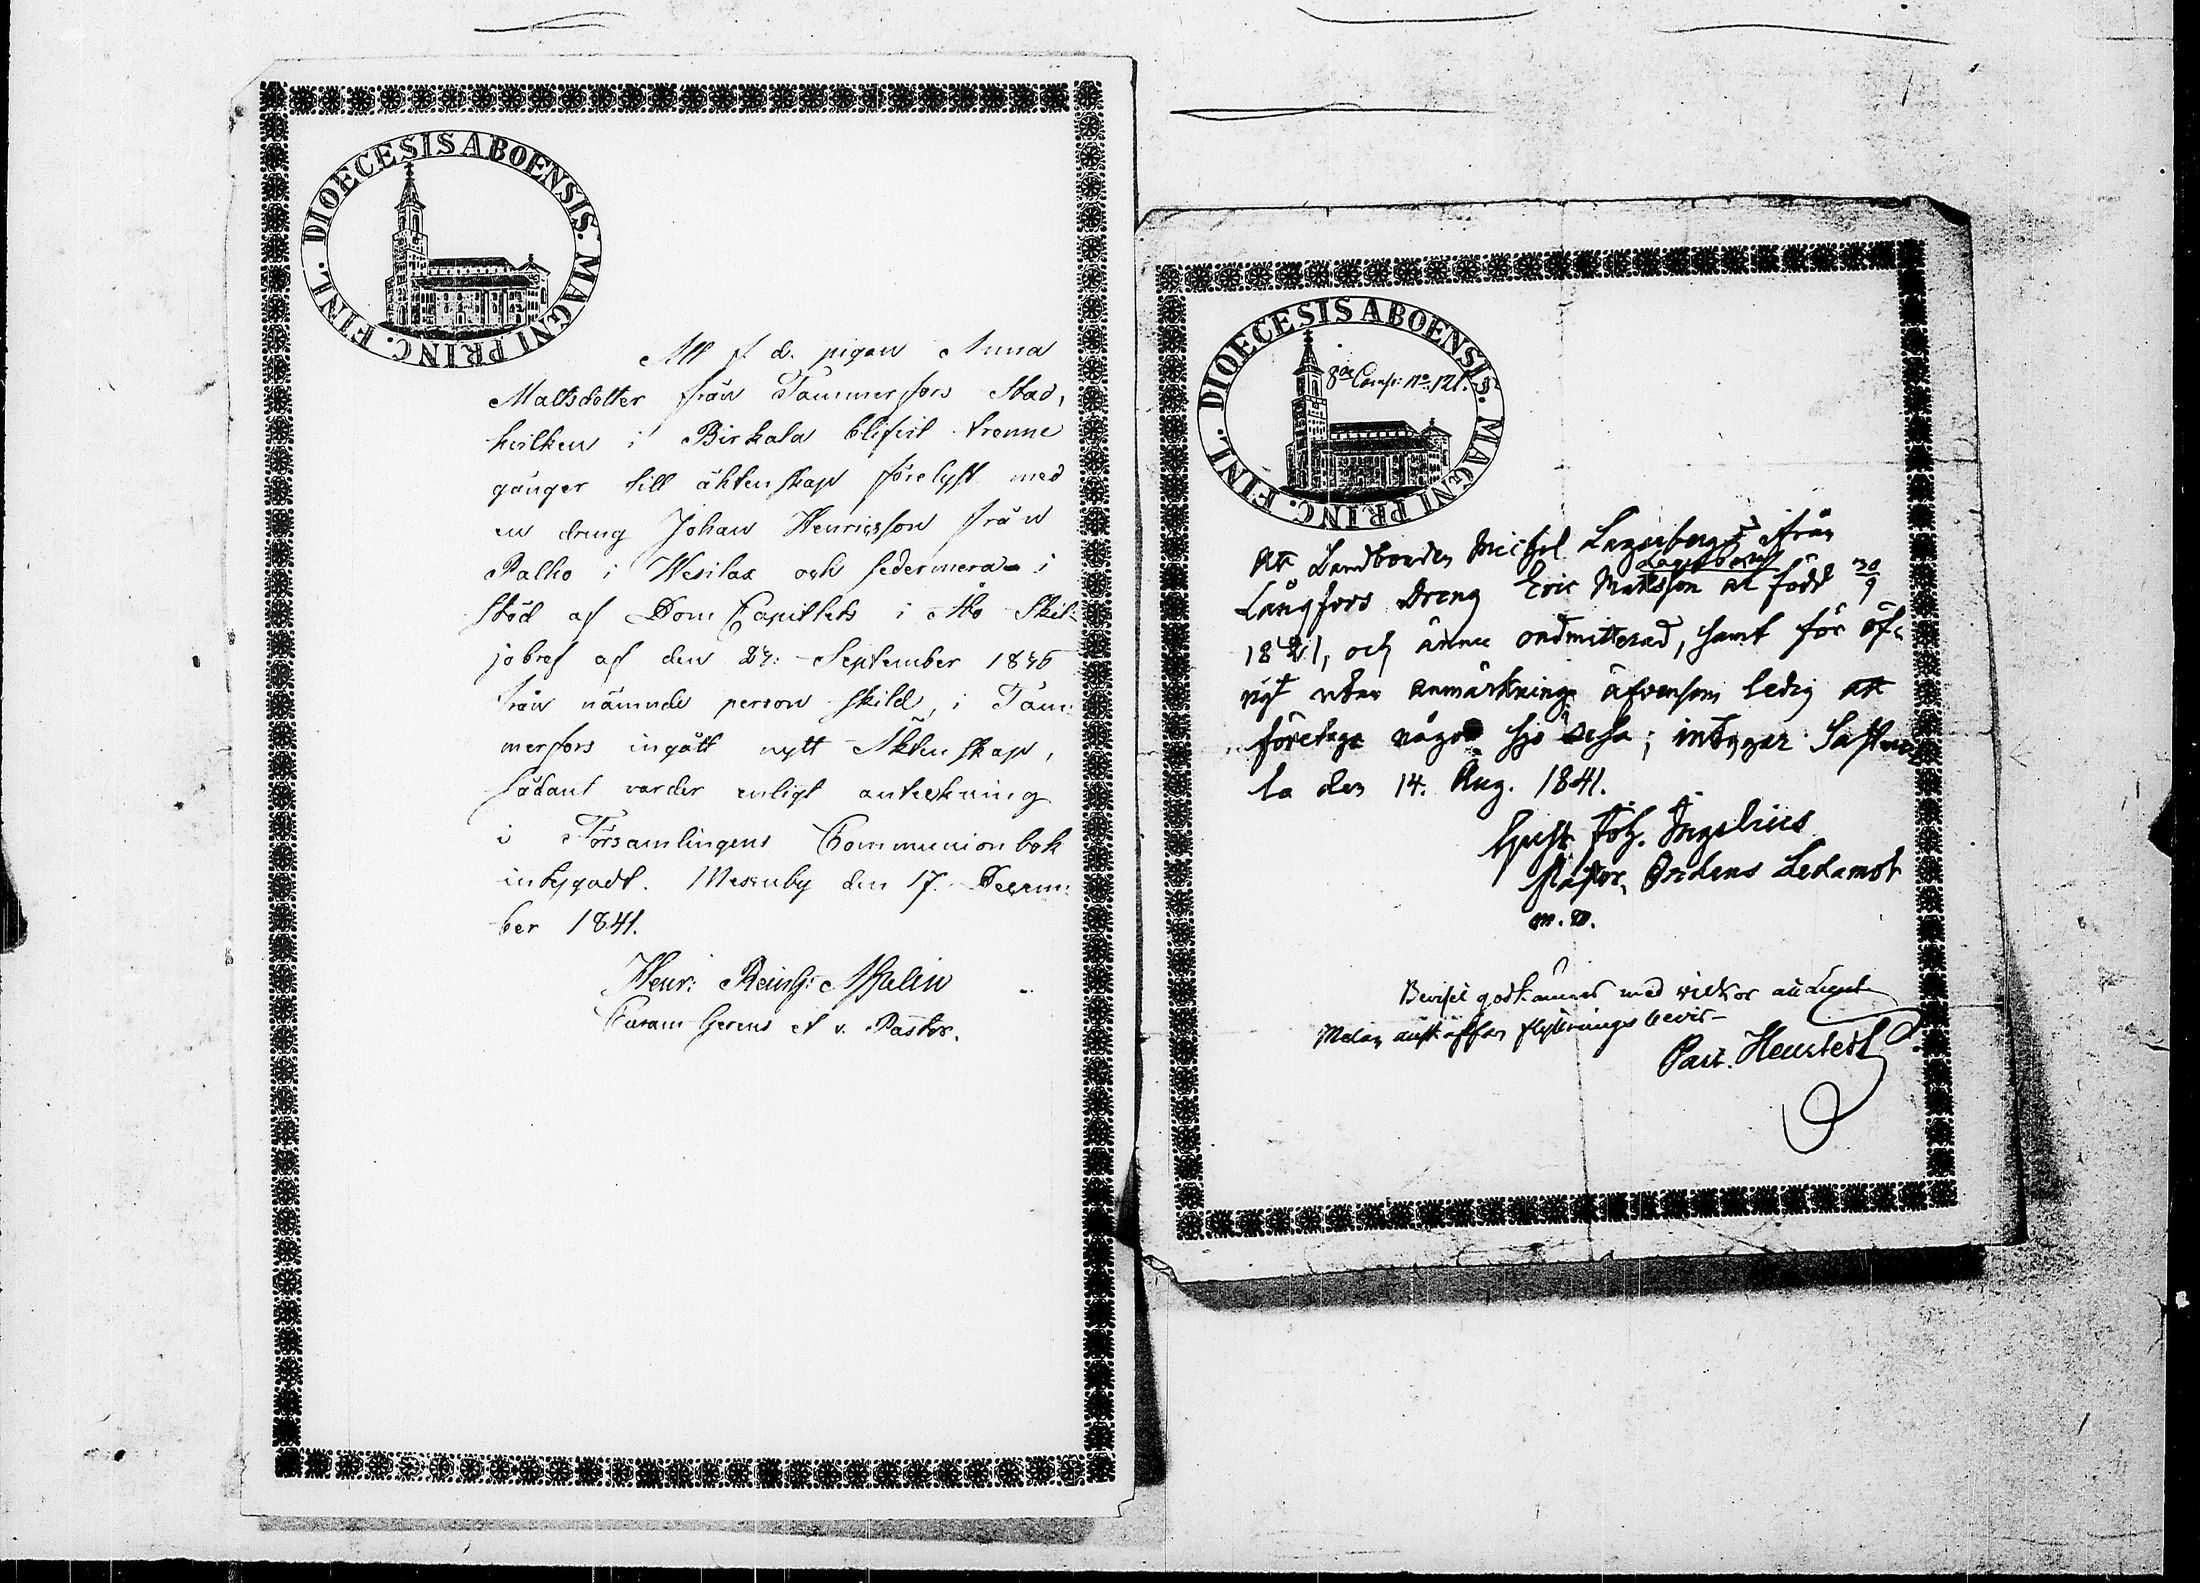 DIOECESIS ABOENSIS. MAGNI PRINC. FINL.
Att f. d. pigan Anna
Mattsdotter från Tammerfors Stad,
hvilken i Birkala blifvit trenne
gånger till äktenskap förelyst med
en dreng Johan Henricsson från
Palho i Wesilax och sedermera i
stöd af Dom Capitlets i Åbo Skil-
jobref af den 24: September 1840
från nämnde person skild, i Tam-
merfors ingått nytt Äktenskap,
sådant varder enligt anteckning
i Församlingens Communionbok
intygadt. Messuby den 17. Decem-
ber 1841.
Henr: Reinh: Aspelin
Curam Gerens et v. Pastor.
DIOECESIS ABOENSIS. MAGNI PRINC. FINL.
8de Comp: No 121.
Att Landbonden Michel Lagerbergs från
Lagerberg
Långfors Dreng Eric Mattsson är född 30/9
1821, och ännu oadmitterad, samt för öf-
rigt utan anmärkning äfvensom ledig att
företaga någon sjö resa; intygar Sastmo-
la den 14. Aug. 1841.
Gust. Joh. Ingelius
Pastor, Ordens Ledamot
m. m.
Beviset godkännes med vilkor att
Melan anskaffar flyttnings bevis
Past.